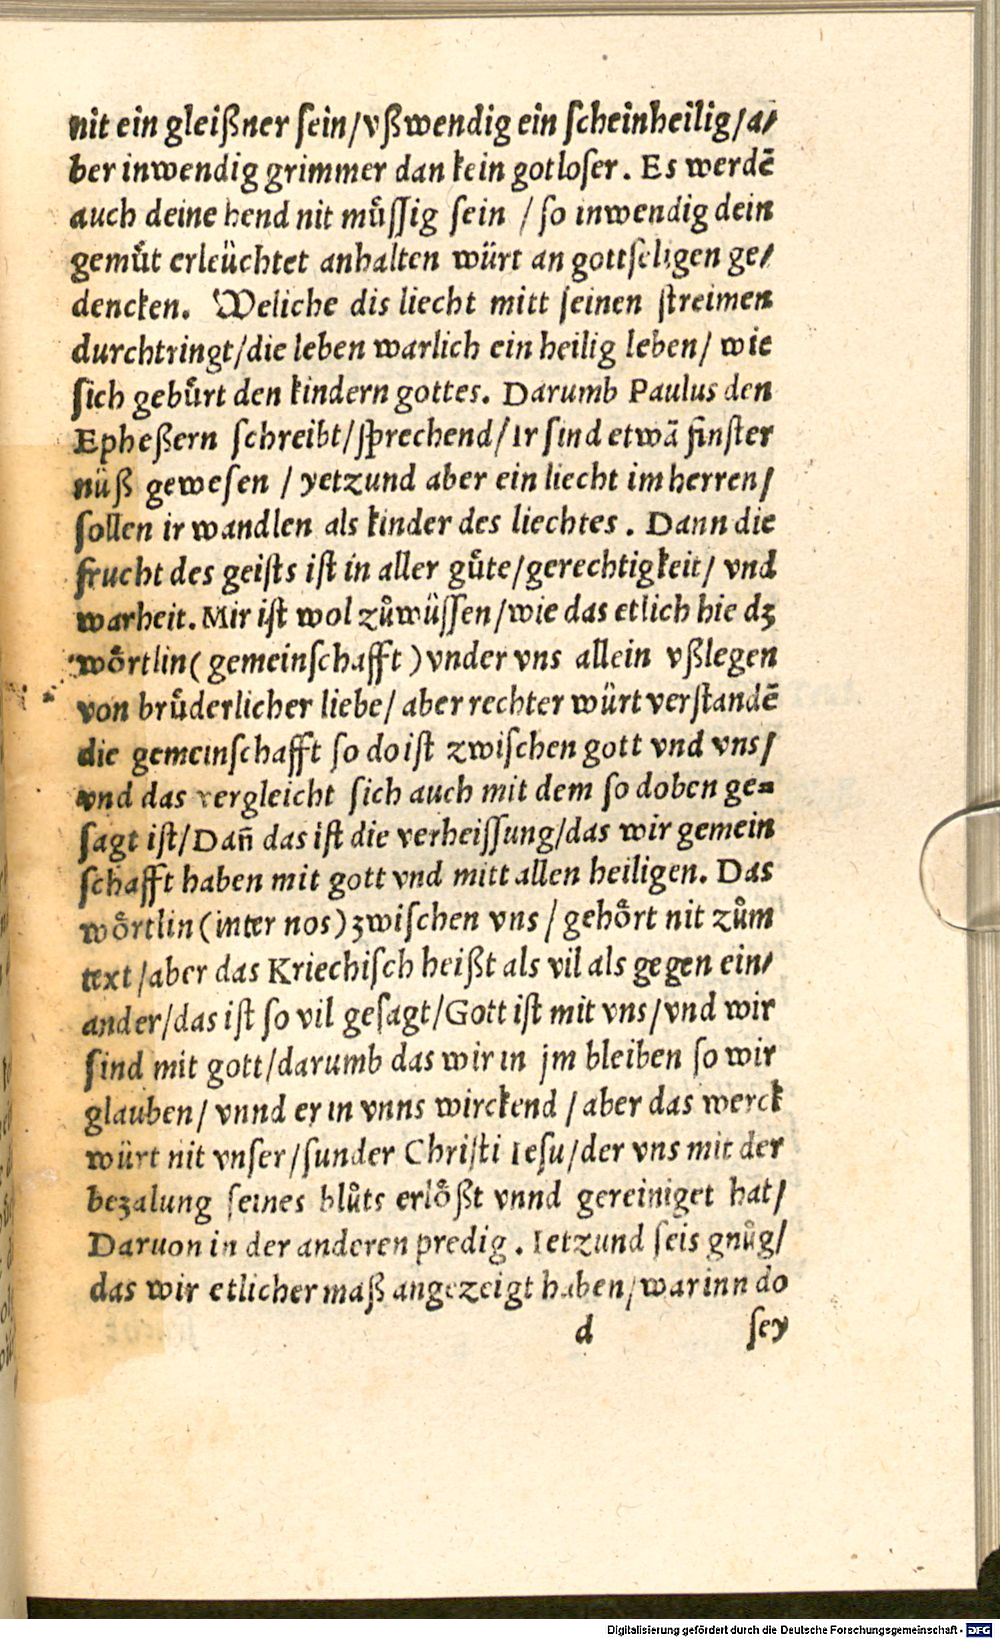 nit ein gleißner ſein/vßwendig ein ſcheinheilig/a⸗
ber inwendig grimmer dan kein gotloſer. Es werdē
auch deine hend nit muͤſſig ſein / ſo inwendig dein
gemuͤt erleüchtet anhalten würt an gottſeligen ge⸗
dencken. Weliche dis liecht mitt ſeinen ſtreimen
durchtringt/die leben warlich ein heilig leben/ wie
ſich gebuͤrt den kindern gottes. Darumb Paulus den
Epheßern ſchreibt/ſprechend/Ir ſind etwā finſter
nüß gewesen / yetzund aber ein liecht im herren/
ſollen ir wandlen als kinder des liechtes. Dann die
frucht des geiſts iſt in aller guͤte/gerechtigkeit/ vnd
warheit. Mir iſt wol zuͦwüſſen/wie das etlich hie dʒ
woͤrtlin(gemeinſchafft)vnder vns allein vßlegen
von bruͤderlicher liebe/ aber rechter würt verſtandē
die gemeinſchafft ſo do iſt zwiſchen gott vnd vns/
vnd das vergleicht ſich auch mit dem ſo doben ge⸗
ſagt iſt/Dañ das iſt die verheiſſung/das wir gemein
ſchafft haben mit gott vnd mitt allen heiligen. Das
woͤrtlin(inter nos)zwiſchen vns / gehoͤrt nit zuͦm
text/aber das Kriechiſch heißt als vil als gegen ein⸗
ander/das iſt ſo vil geſagt/Gott iſt mit vns/vnd wir
ſind mit gott/darumb das wir in jm bleiben ſo wir
glauben/ vnnd er in vnns wirckend / aber das werck
würt nit vnſer/ſunder Chriſti Ieſu/der vns mit der
bezalung ſeines bluͦts erloͤßt vnnd gereiniget hat/
Daruon in der anderen predig. Ietzund ſeis gnuͦg/
das wir etlicher maß angezeigt haben/warinn do
d ſey
Digitalisierung gefördert durch die Deutsche Forschungsgemeinschaft - DFG